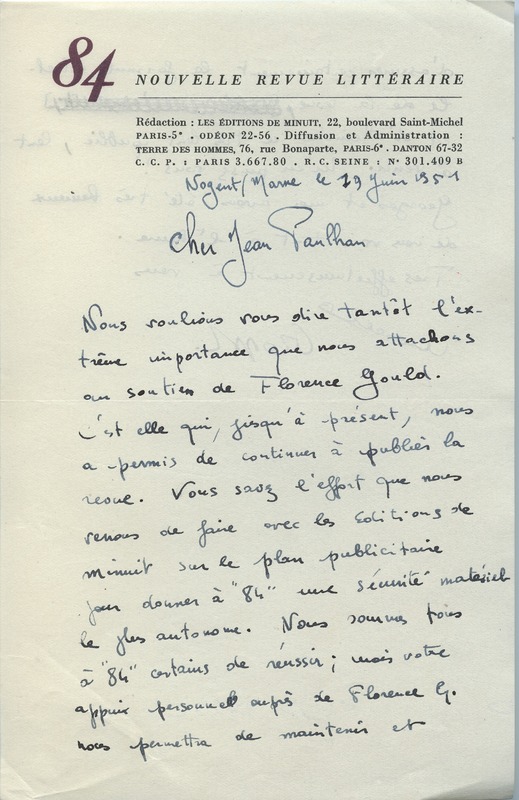 84 NOUVELLE REVUE LITTÉRAIRE
Rédaction : LES ÉDITIONS DE MINUIT, 22, boulevard Saint-Michel
PARIS-5e . ODÉON 22-56 . Diffusion et Administration :
TERRE DES HOMMES, 76, rue Bonaparte, PARIS-6e . DANTON 67-32
C. C. P. : PARIS 3.667.80 . R. C. SEINE : No 301.409 B
Nogent/Marne le 19 Juin 1951
Cher Jean Paulhan
Nous voulions vous dire tantôt l'ex-
trême importance que nous attachons
au soutien de Florence Gould.
C'est elle qui, jusqu'à présent, nous
a permis de continuer à publier la
revue. Vous savez l'effort que nous
venons de faire avec les Editions de
Minuit sur le plan publicitaire
pour donner à "84" une sécurité matériel
le plus autonome. Nous sommes tous
à "84" certains de réussir ; mais votre
appui personnel auprès de Florence G.
nous permettra de maintenir et